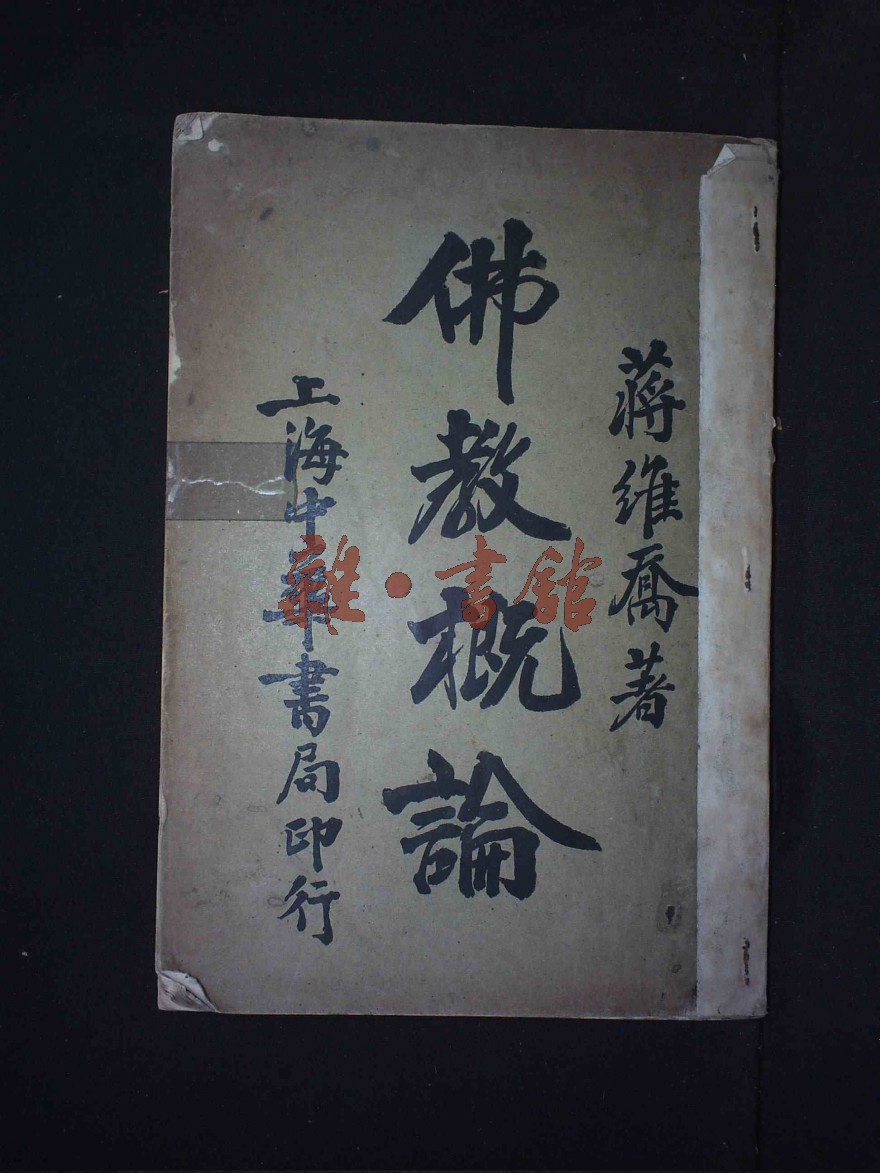 蔣維喬著
佛教概論
上海中華書局印行
雜·書館